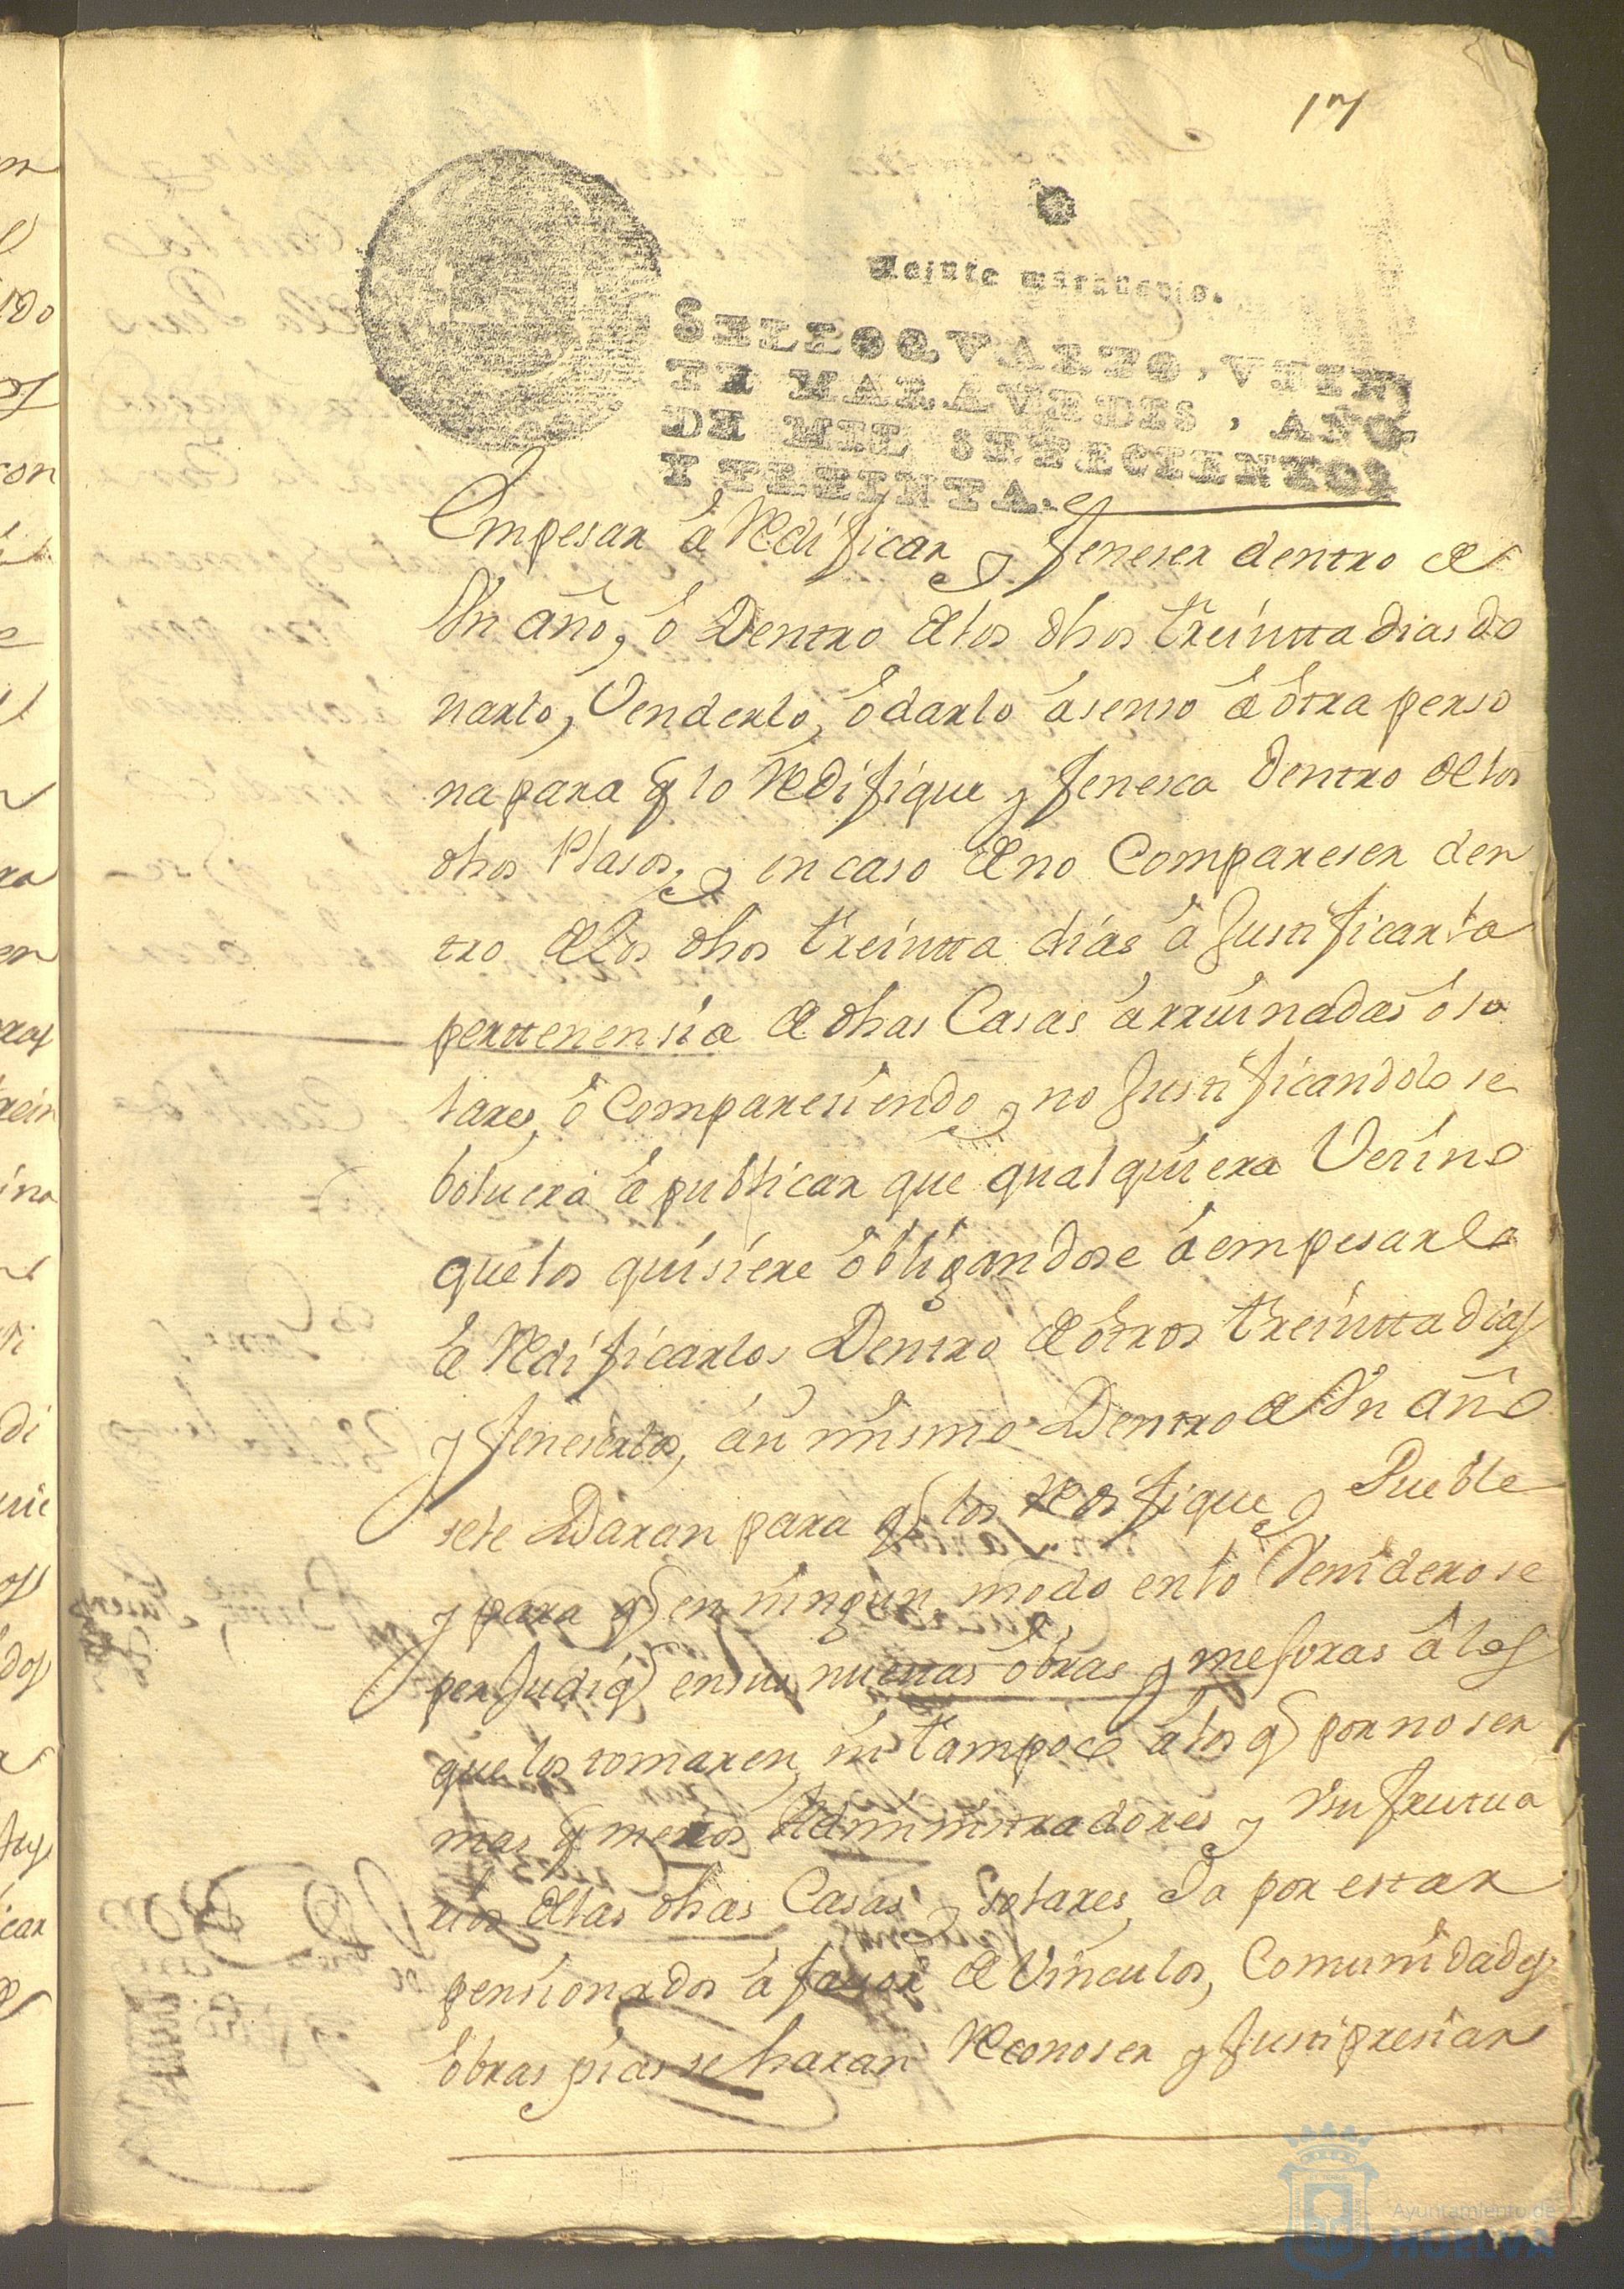 17
Veinte maravedis.
SELLO QVARTO, VEIN
TE MARAVEDIS, AÑO
DE MIL SETECIENTOS
Y TREINTA.
Empesar â Redificar y feneser dentro de
Un año, ô Dentro delos dhos treintta dias do
narlo, Venderlo, ô darlo âsenso â ôtra perso
na para q lo Redifique y fenesca Dentro delos
dhos Plasos, y en caso de no Compareser den
tro delos dhos treintta dias â Justificar la
perttenensia de dhas Casas ârruinadas ô so
lares, ô Compareciendo y no Justificandolo se
boluerâ â publicar que qualquiera Vesino
que los quisiere ôbligandose â empesarlo
â Redificarlos Dentro de ôtros treintta dias
y feneserlos, âsi mismo Dentro de Un año
sele Daran para q los Redifique y Pueble
y para q en ningun modo en lo Venidero se
perJudiq en sus nueuas ôbras y meJoras â los
que los tomaren, ni tampoco â los q por no ser
mas q meros Administradores y Vsufrutua
rios delas dhas Casas y solares, Ja por estar
pensionados â fauor de Vinculos, Comunidades
ôbras pias se haran Reconoser y Justipresiar
Ayuntamiento de
HUELVA